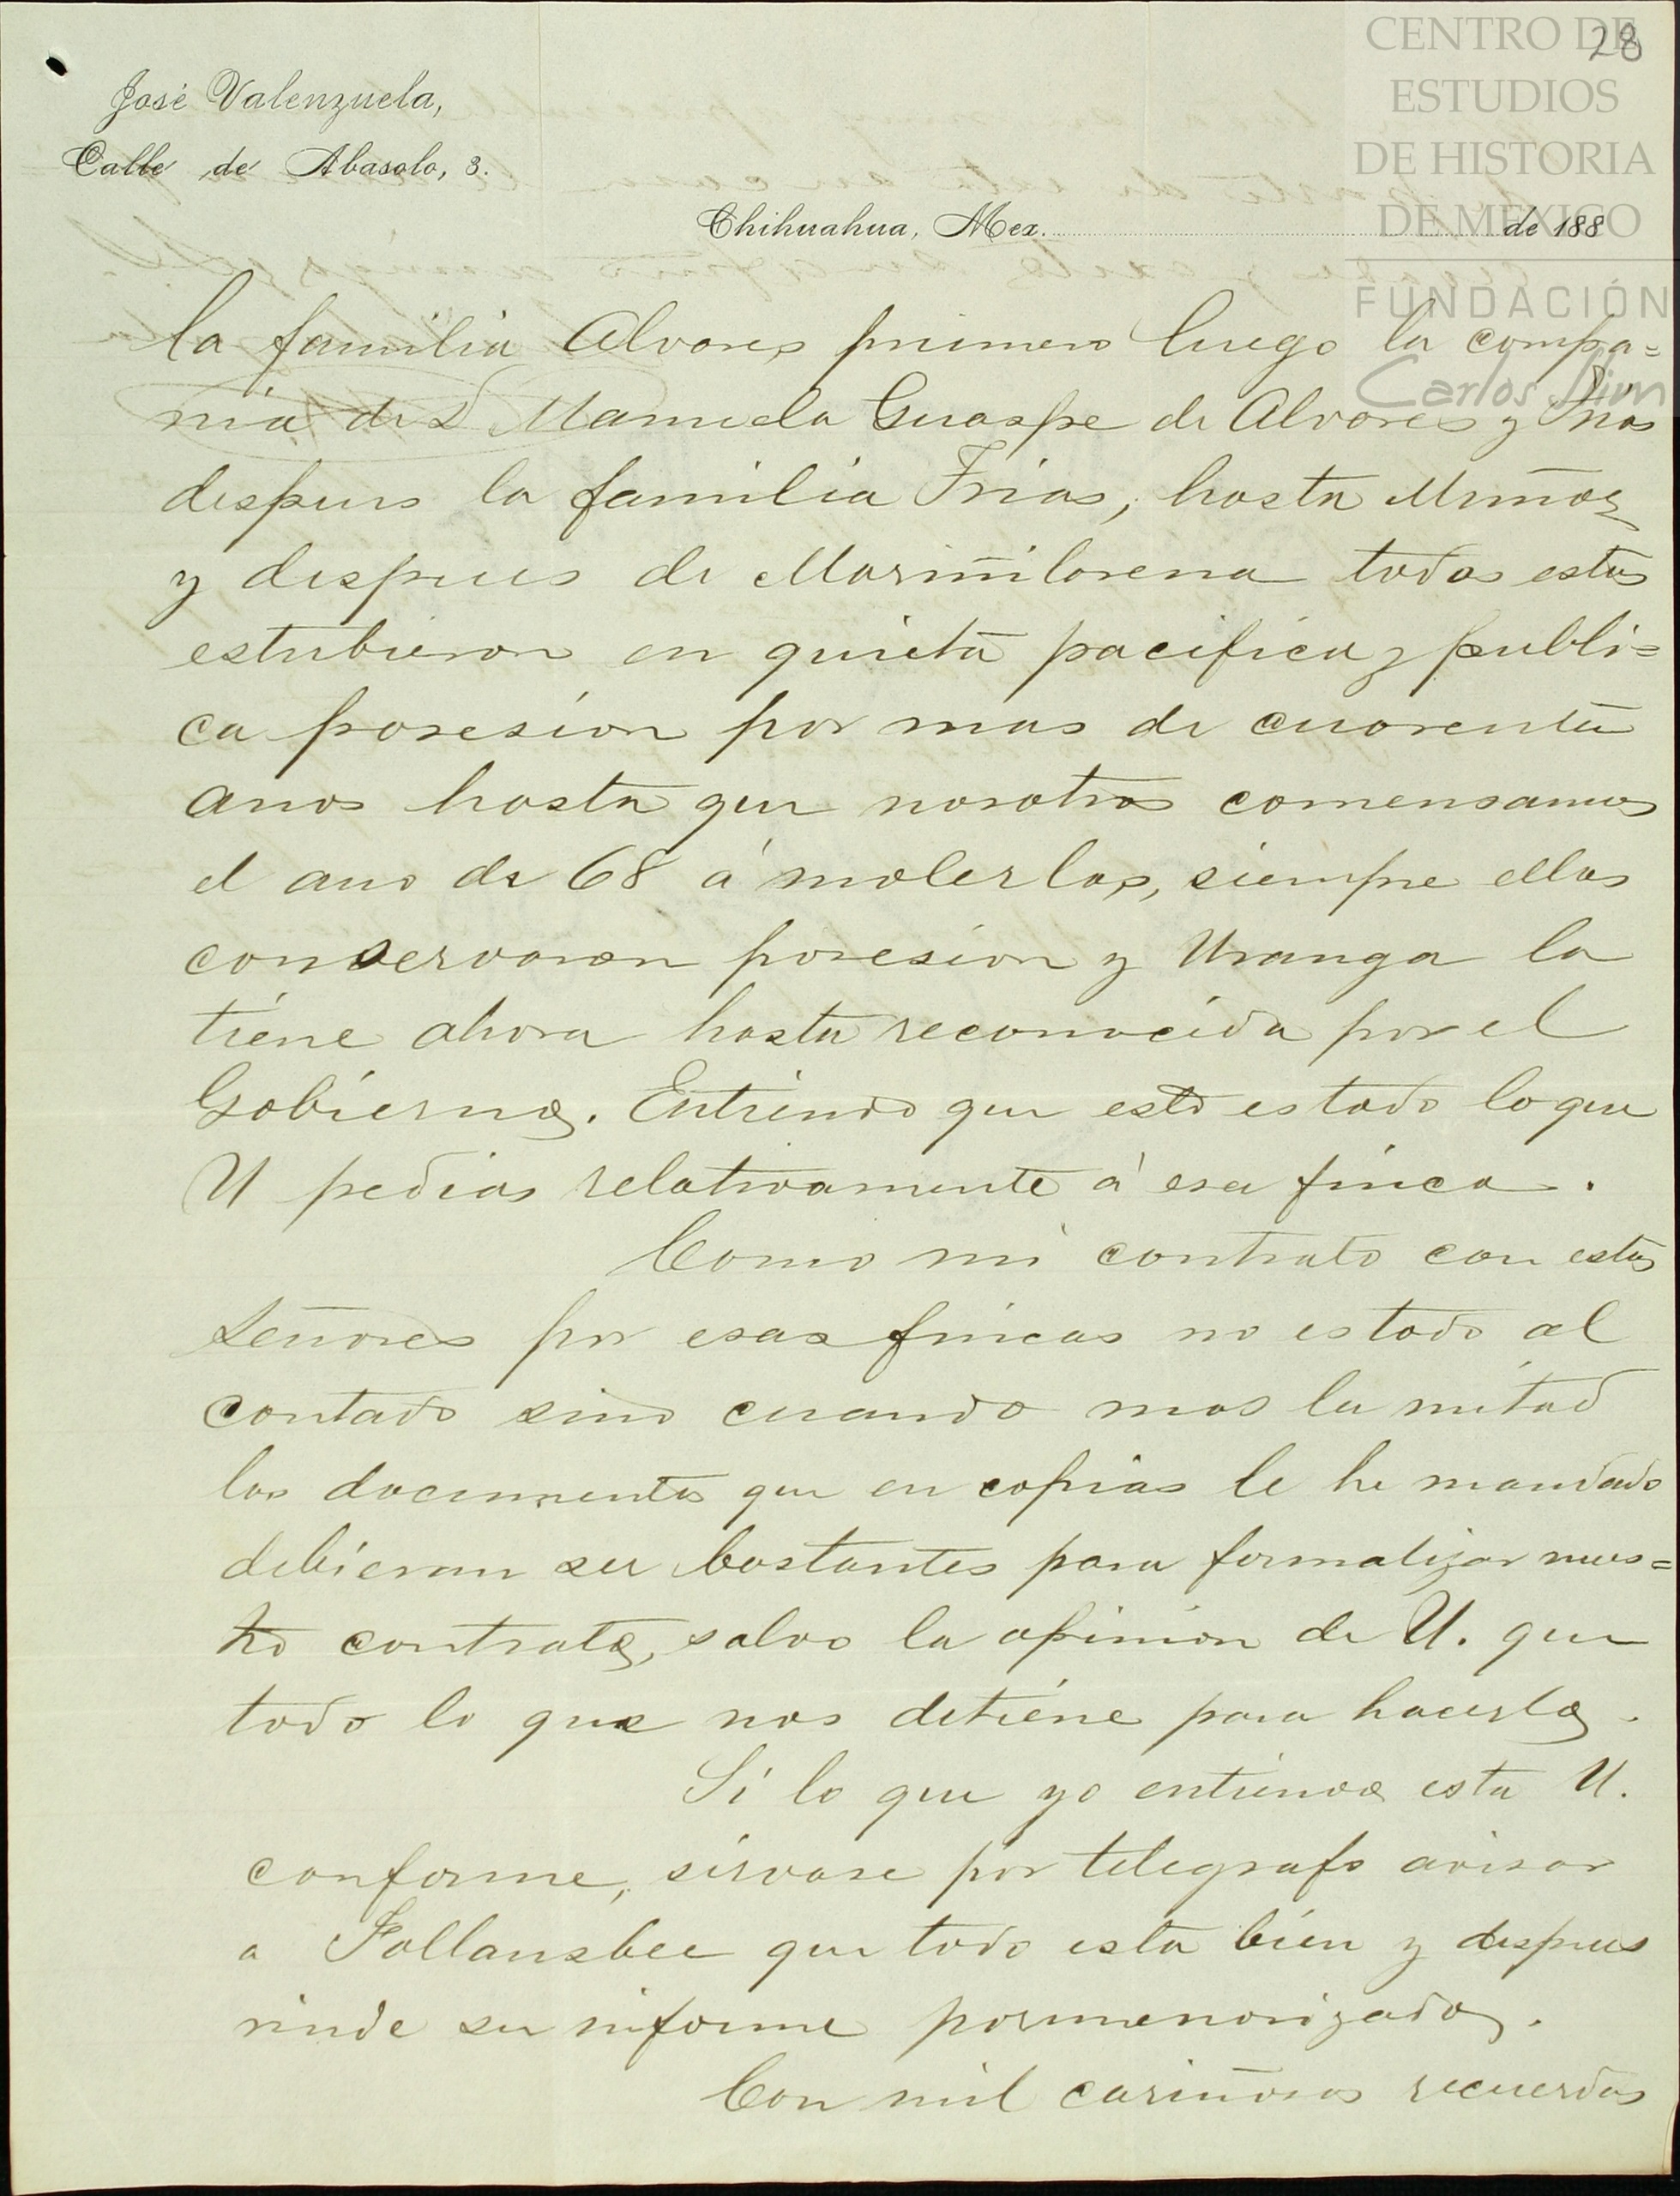 28
CENTRO DE
ESTUDIOS
DE HISTORIA
DE MEXICO
FUNDACIÓN
Carlos Slim
José Valenzuela,
Calle de Abasolo, 3.
Chihuahua, Mex. de 188
la familia Alvares primero luego la compa=
ñia de D Manuela Guaspe de Alvares y Frias
despues la familia Frias, hasta Muñoz
y despues de Mariñilarena todos estos
estubieron en quieta pacifica y publi=
ca posesion por mas de cuarenta
anos hasta que nosotros comensamos
el ano de 68 á molerlas, siempre ellos
conservaron posesion y Uranga la
tiene ahora hasta reconocida por el
Gobierno. Entiendo que esto es todo lo que
U pedias relativamente á esa finca.
Como mi contrato con estos
señores por esas fincas no es todo al
contado sino cuando mas la mitad
los documentos que en copias le he mandado
debieran ser bastantes para formalizar nues=
tro contrato, salvo la opinion de U. que
todo lo que nos detiene para hacerlo.
Si lo que yo entiendo esta U.
conforme, sirvase por telegrafo avisar
a Follansbee que todo esta bien y despues
rinde su informe pormenorizado.
Con mil cariñosos recuerdos